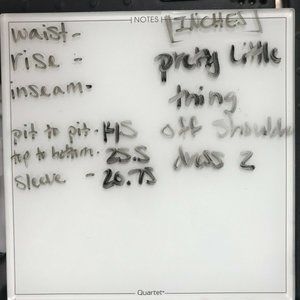 NOTES
[INCHES]
waist-
rise -
inseam-
pretty little
thing
off shoulder
dress 2
pit to pit-
top to bottom- 25.5
Sleeve - 20.75
Quartet